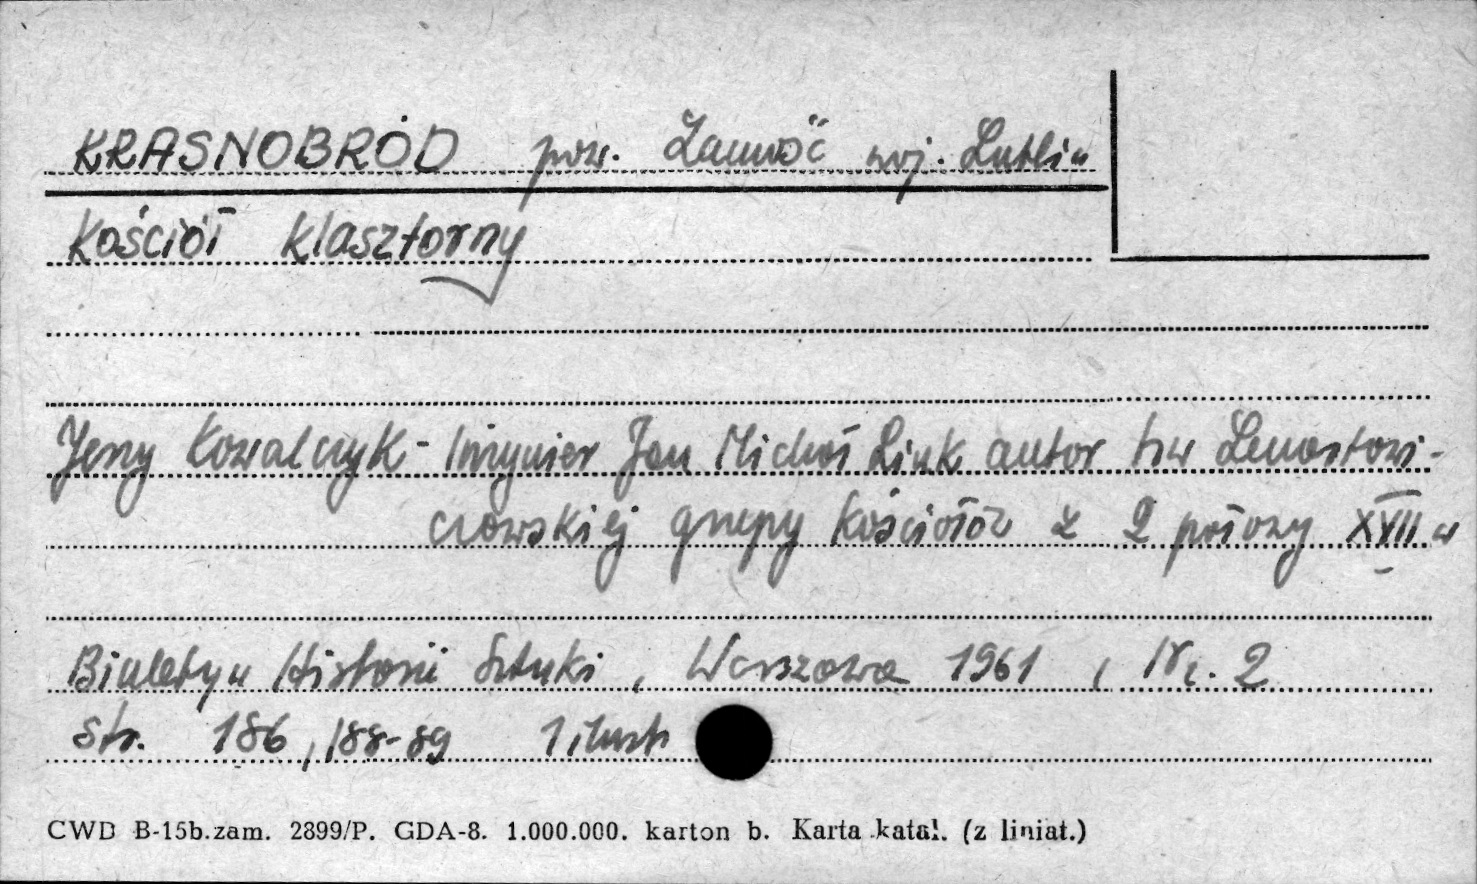 KRASNOBRÓD pow. Zamość woj. Lublin
Kościół Klasztorny
Jerzy Kowalczyk - Inżynier Jan Michał Link autor tzw Lenartowi-
czowskiej grupy kościołów z 2 połowy XVII w
Biuletyn Historii Sztuki, Warszawa 1961, Nr. 2
str. 186, 188-89 1 ilustr
CWD B-15b.zam. 2899/P. GDA-8. 1.000.000. karton b. Karta katal. (z liniat.)